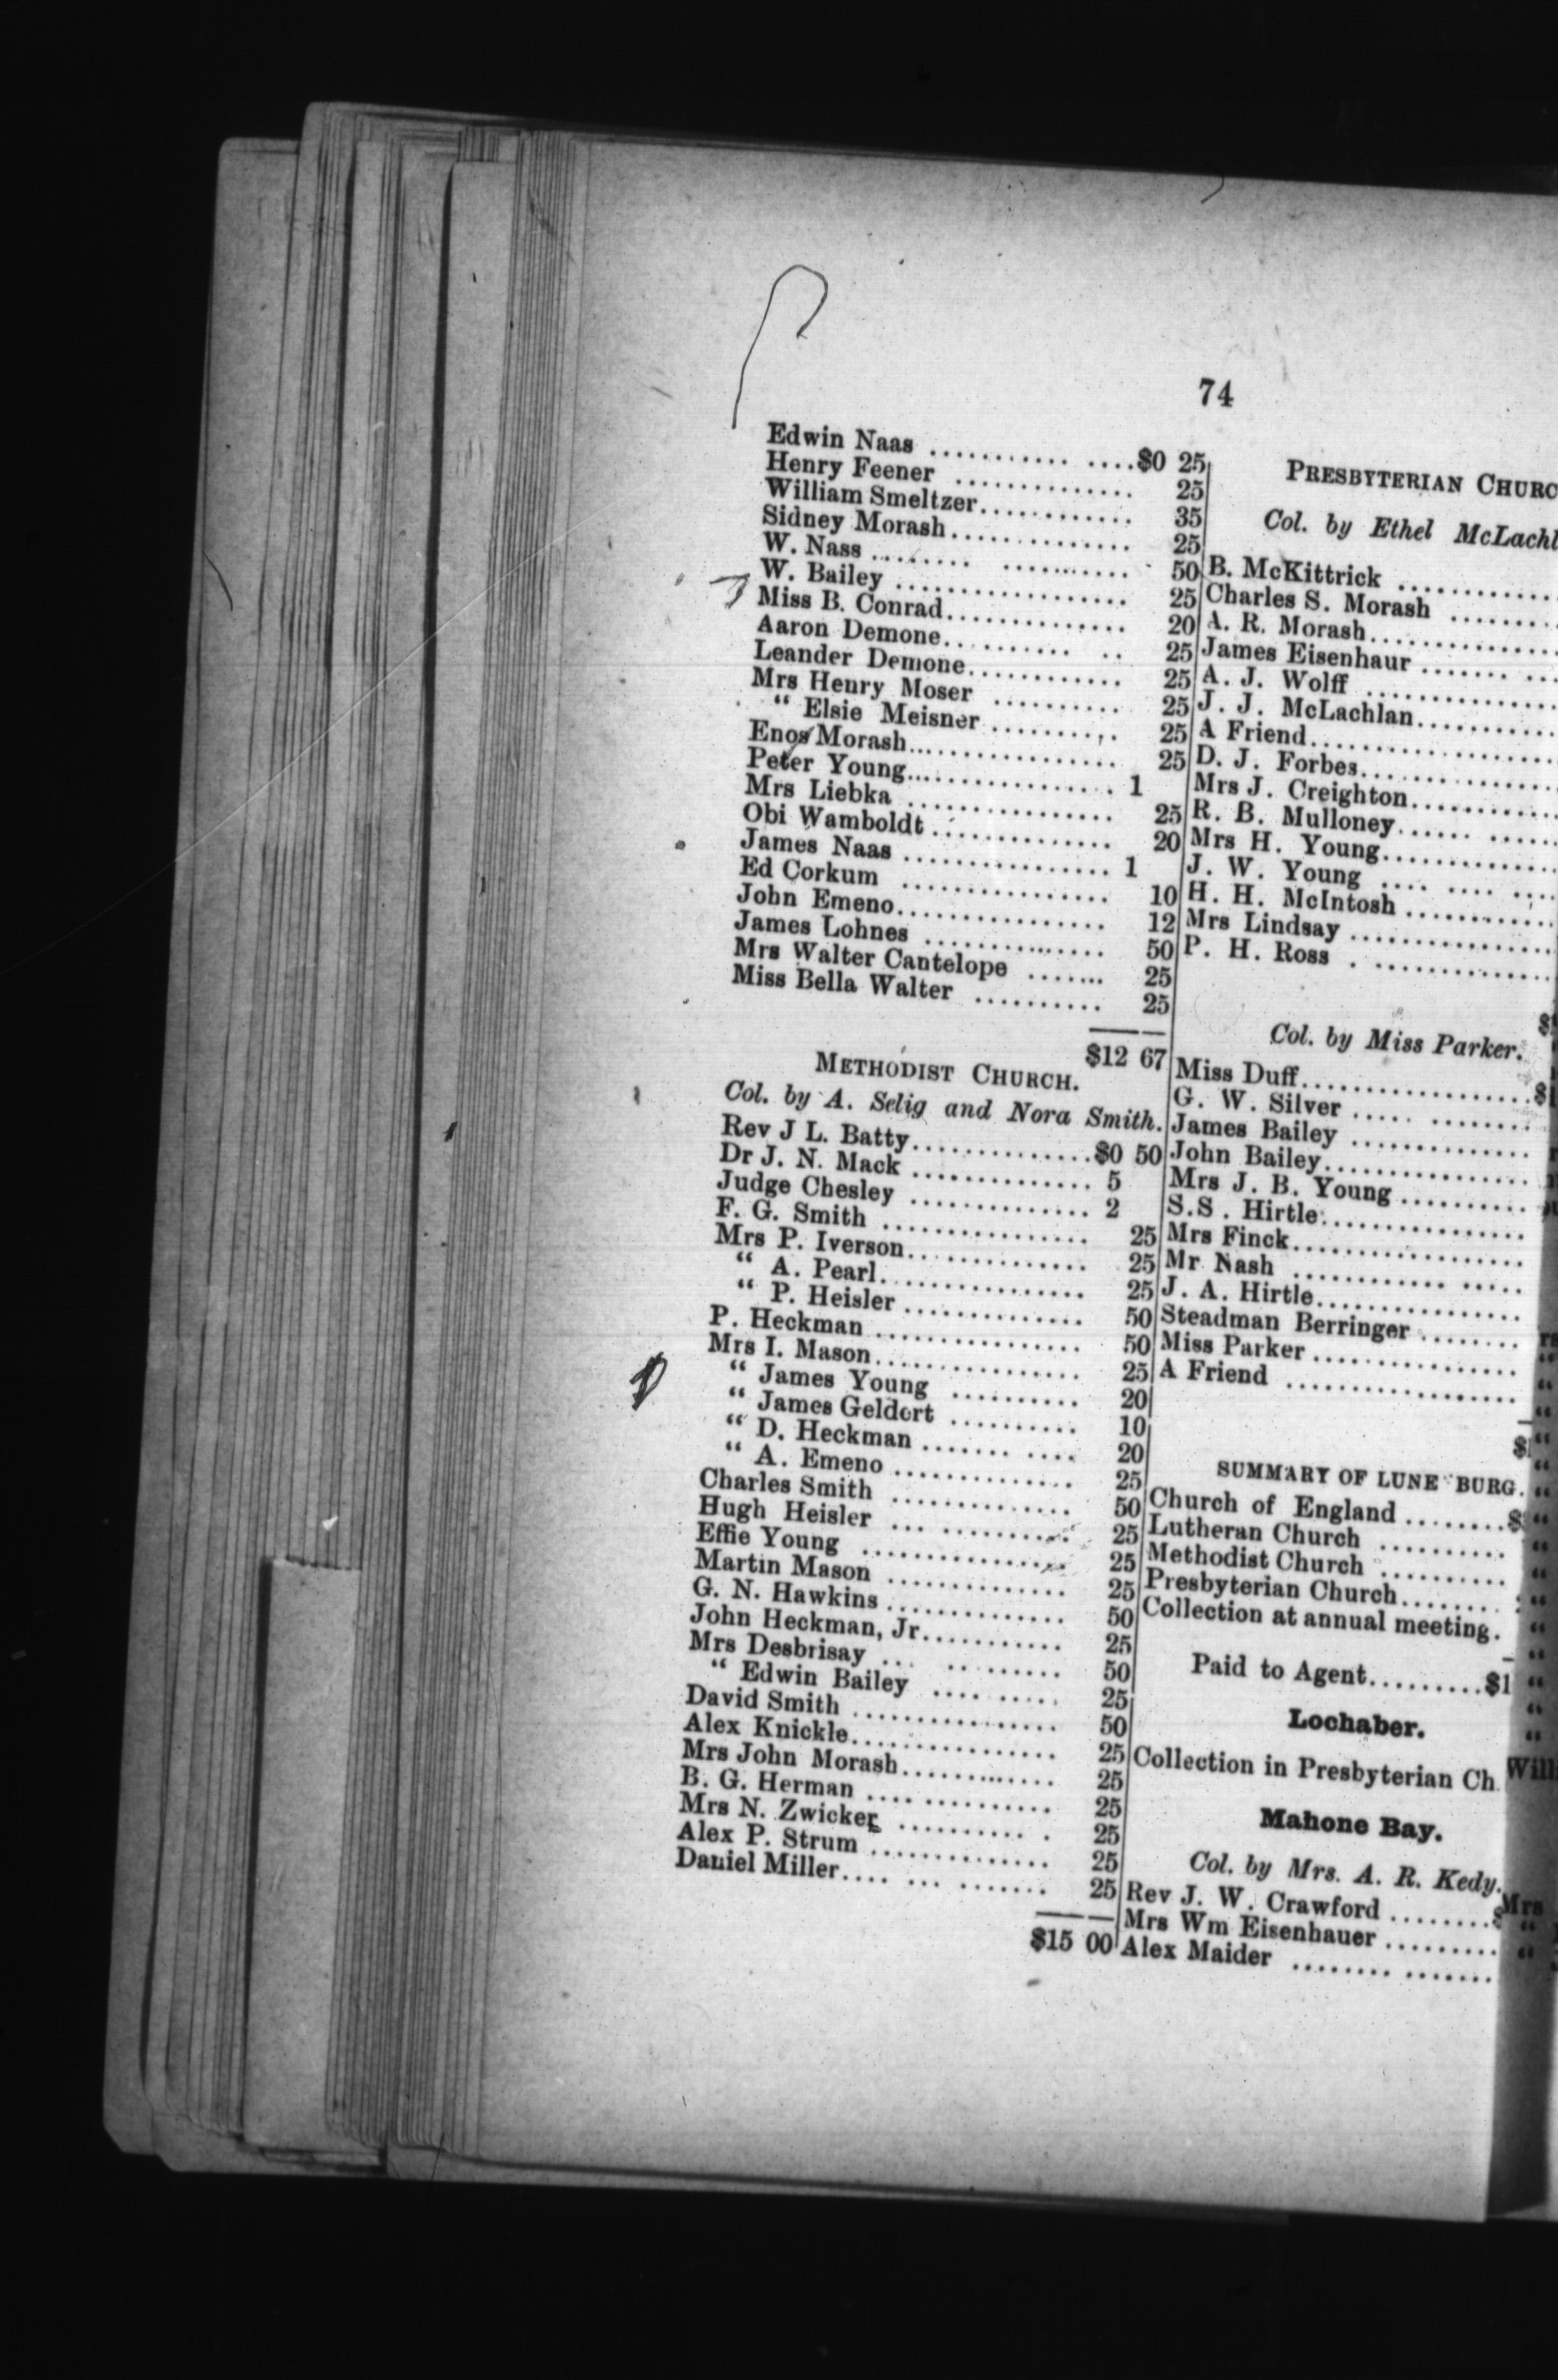 74
Edwin Naas ........... ....$0 25
Henry Feener .............. 25
William Smeltzer............ 35
Sidney Morash.............. 25
W. Nass ......... .......... 50
W. Bailey ................... 25
Miss B. Conrad.............. 20
Aaron Demone.......... .. 25
Leander Demone............ 25
Mrs Henry Moser .......... 25
" Elsie Meisner .......... 25
Enos Morash................ 25
Peter Young................ 1
Mrs Liebka ................ 25
Obi Wamboldt .............. 20
James Naas ................ 1
Ed Corkum ................ 10
John Emeno................ 12
James Lohnes .............. 50
Mrs Walter Cantelope ....... 25
Miss Bella Walter .......... 25
$12 67
METHODIST CHURCH.
Col. by A. Selig and Nora Smith.
Rev J L. Batty..............$0 50
Dr J. N. Mack .............. 5
Judge Chesley .............. 2
F. G. Smith ................ 25
Mrs P. Iverson.............. 25
" A. Pearl................ 25
" P. Heisler .............. 50
P. Heckman ................ 50
Mrs I. Mason................ 25
" James Young .......... 20
" James Geldert .......... 10
" D. Heckman ....... .... 20
" A. Emeno .............. 25
Charles Smith .............. 50
Hugh Heisler ... .......... 25
Effie Young ................ 25
Martin Mason .............. 25
G. N. Hawkins .............. 50
John Heckman, Jr........... 25
Mrs Desbrisay ... ......... 50
" Edwin Bailey .... ..... 25
David Smith ................ 50
Alex Knickle................ 25
Mrs John Morash............ 25
B. G. Herman .... .......... 25
Mrs N. Zwicker .......... . 25
Alex P. Strum .............. 25
Daniel Miller.... ... ....... 25
$15 00
PRESBYTERIAN CHURC
Col. by Ethel McLachl
B. McKittrick ............
Charles S. Morash ........
A. R. Morash..............
James Eisenhaur ....... ...
A. J. Wolff ..............
J. J. McLachlan...........
A Friend..................
D. J. Forbes..............
Mrs J. Creighton..........
R. B. Mulloney...... ......
Mrs H. Young.............
J. W. Young .... .... ....
H. H. McIntosh ...........
Mrs Lindsay ...............
P. H. Ross . .............
$
Col. by Miss Parker.
Miss Duff..................$
G. W. Silver ..... ........
James Bailey ..............
John Bailey................
Mrs J. B. Young ..........
S.S. Hirtle................
Mrs Finck..................
Mr Nash ............ .....
J. A. Hirtle................
Steadman Berringer ........
Miss Parker ................
A Friend ..................
$
SUMMARY OF LUNE BURG.
Church of England ........$
Lutheran Church ..........
Methodist Church ..........
Presbyterian Church........
Collection at annual meeting.
Paid to Agent.........$1
Lochaber.
Collection in Presbyterian Ch.
Mahone Bay.
Col. by Mrs. A. R. Kedy.
Rev J. W. Crawford ........$
Mrs Wm Eisenhauer .........
Alex Maider ........ .......
"
"
"
"
"
"
"
"
"
"
"
"
"
"
Will
Mrs
"
"